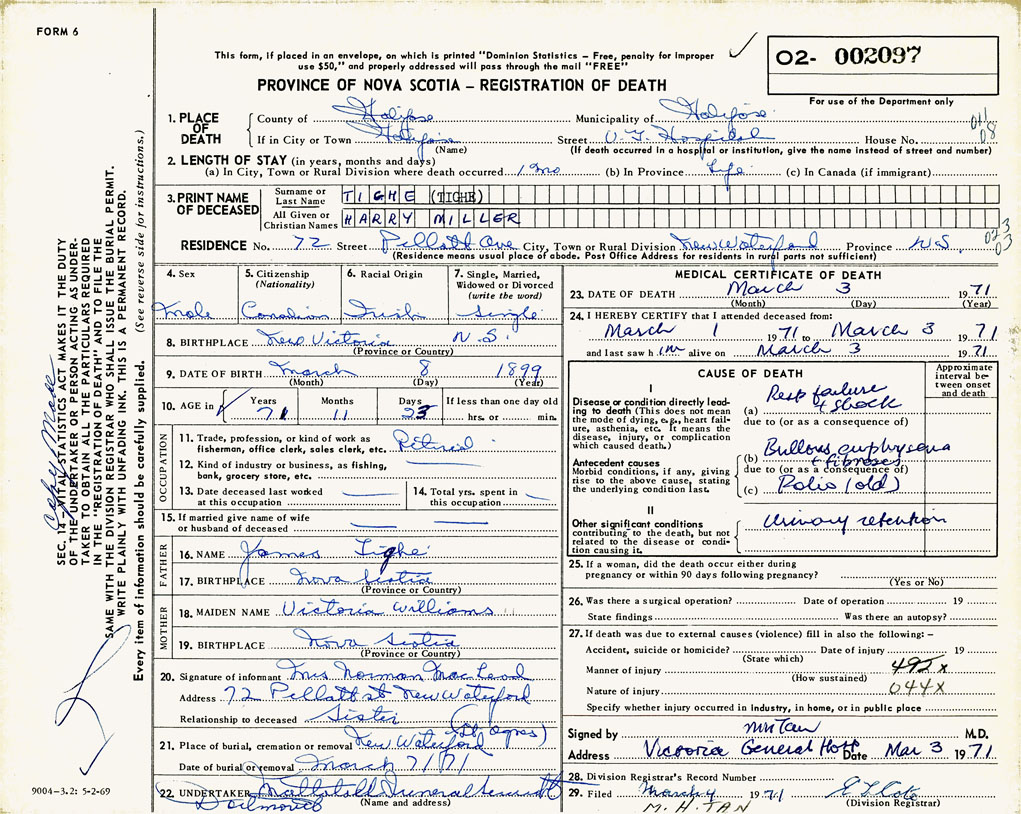 FORM 6
This form, if placed in an envelope, on which is printed "Dominion Statistics – Free, penalty for improper
use $50," and properly addressed will pass through the mail "FREE"
PROVINCE OF NOVA SCOTIA – REGISTRATION OF DEATH
02- 002097
For use of the Department only
1. PLACE OF DEATH
County of Halifax Municipality of Halifax
If in City or Town Halifax Street V.G. Hospital House No.
(Name) (If death occurred in a hospital or institution, give the name instead of street and number)
011
08
2. LENGTH OF STAY (in years, months and days)
(a) In City, Town or Rural Division where death occurred 1 mo (b) In Province Life (c) In Canada (if immigrant)
3. PRINT NAME OF DECEASED
Surname or Last Name TIGHE (TIGHE)
All Given or Christian Names HARRY MILLER
RESIDENCE No. 72 Street Pillatt Ave City, Town or Rural Division New Waterford Province N.S.
(Residence means usual place of abode. Post Office Address for residents in rural parts not sufficient)
023
03
4. Sex
Male
5. Citizenship
(Nationality)
Canadian
6. Racial Origin
Irish
7. Single, Married,
Widowed or Divorced
(write the word)
Single
8. BIRTHPLACE New Victoria N.S.
(Province or Country)
9. DATE OF BIRTH March 8 1899
(Month) (Day) (Year)
10. AGE in
Years Months Days If less than one day old
71 11 23 hrs. or min.
OCCUPATION
11. Trade, profession, or kind of work as
fisherman, office clerk, sales clerk, etc. Retired
12. Kind of industry or business, as fishing,
bank, grocery store, etc.
13. Date deceased last worked
at this occupation
14. Total yrs. spent in
this occupation
15. If married give name of wife
or husband of deceased
FATHER
16. NAME James Tighe
17. BIRTHPLACE Nova Scotia
(Province or Country)
MOTHER
18. MAIDEN NAME Victoria Williams
19. BIRTHPLACE Nova Scotia
(Province or Country)
20. Signature of informant Mrs Norman MacLeod
Address 72 Pillatt st New Waterford
Relationship to deceased Sister
21. Place of burial, cremation or removal New Waterford (St Agnes)
Date of burial or removal March 7/71
22. UNDERTAKER Funeral
(Name and address)
MEDICAL CERTIFICATE OF DEATH
23. DATE OF DEATH March 3 1971
(Month) (Day) (Year)
24. I HEREBY CERTIFY that I attended deceased from:
March 1 1971 to March 3 1971
and last saw him alive on March 3 1971
CAUSE OF DEATH
Approximate
interval be-
tween onset
and death
I
Disease or condition directly lead-
ing to death (This does not mean
the mode of dying, e.g., heart fail-
ure, asthenia, etc. It means the
disease, injury, or complication
which caused death.)
(a) Resp failure
+ shock
due to (or as a consequence of)
Antecedent causes
Morbid conditions, if any, giving
rise to the above cause, stating
the underlying condition last.
(b) Bullous emphysema
+ fibrosis
due to (or as a consequence of)
(c) Polio (old)
II
Other significant conditions
contributing to the death, but not
related to the disease or condi-
tion causing it.
Urinary retention
25. If a woman, did the death occur either during
pregnancy or within 90 days following pregnancy?
(Yes or No)
26. Was there a surgical operation? Date of operation 19
State findings Was there an autopsy?
27. If death was due to external causes (violence) fill in also the following: –
Accident, suicide or homicide? Date of injury 19
(State which)
Manner of injury 492X
(How sustained)
Nature of injury 044X
Specify whether injury occurred in industry, in home, or in public place
Signed by MH Tan M.D.
Address Victoria General Hosp Date Mar 3 1971
28. Division Registrar's Record Number
29. Filed March 4 1971
M. H. TAN (Division Registrar)
SEC. 14 – VITAL STATISTICS ACT MAKES IT THE DUTY
OF THE UNDERTAKER OR PERSON ACTING AS UNDER-
TAKER TO OBTAIN ALL THE PARTICULARS REQUIRED
IN THE "REGISTRATION OF DEATH" AND TO FILE THE
SAME WITH THE DIVISION REGISTRAR WHO SHALL ISSUE THE BURIAL PERMIT.
WRITE PLAINLY WITH UNFADING INK. THIS IS A PERMANENT RECORD.
Every item of information should be carefully supplied. (See reverse side for instructions.)
9004–3.2: 5-2-69